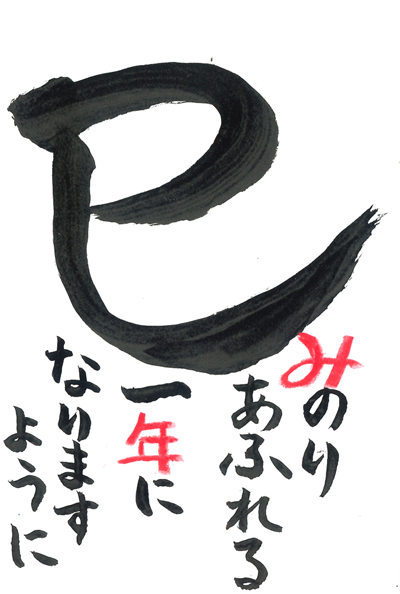 巳
みのり
あふれる
一年に
なります
ように